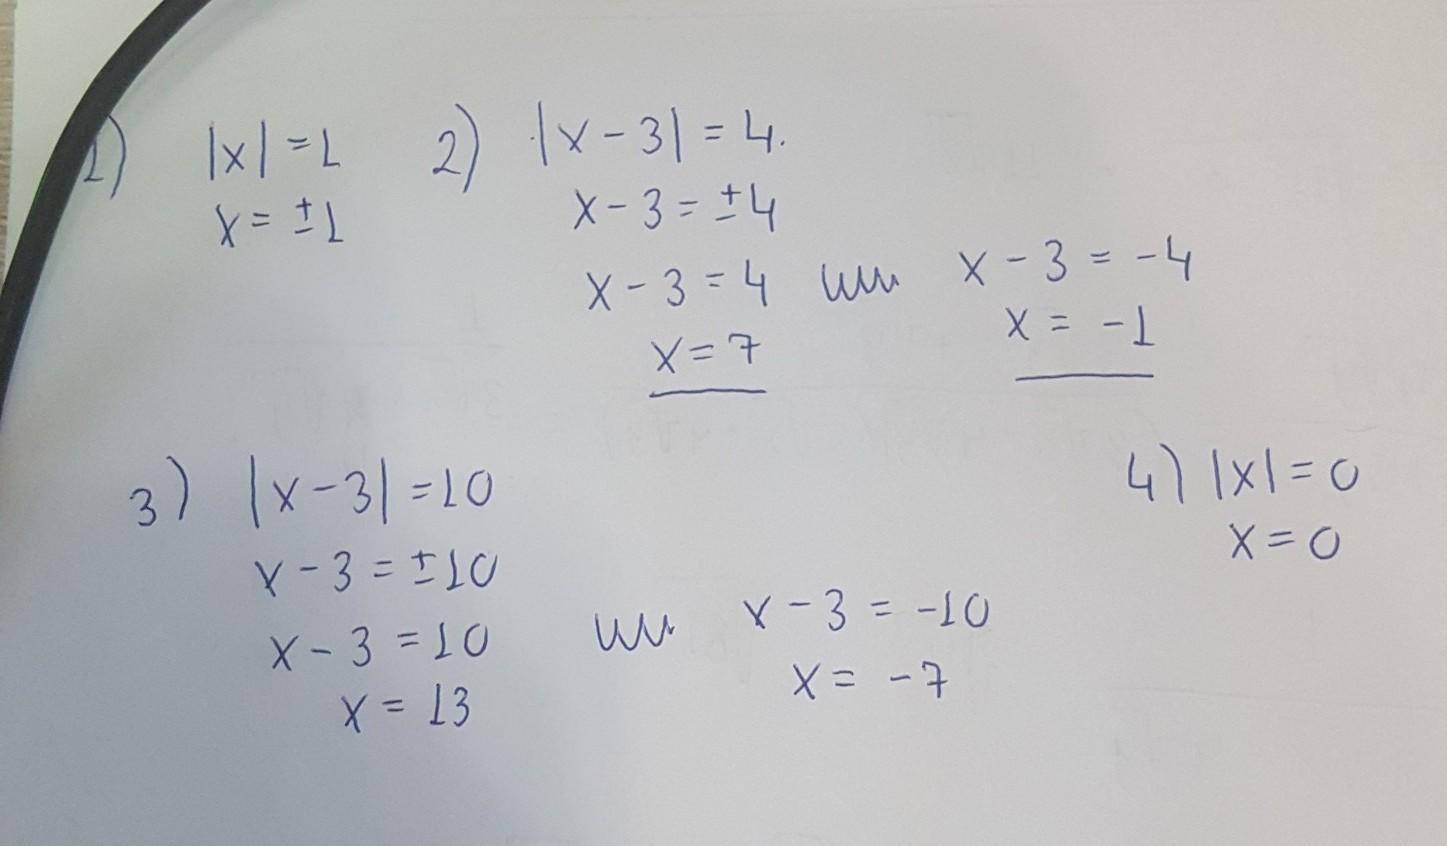 1) |x| = 1
x = ±1
2) |x - 3| = 4.
x - 3 = ±4
x - 3 = 4 или x - 3 = -4
x = 7 x = -1
3) |x - 3| = 10
x - 3 = ±10
x - 3 = 10 или x - 3 = -10
x = 13 x = -7
4) |x| = 0
x = 0